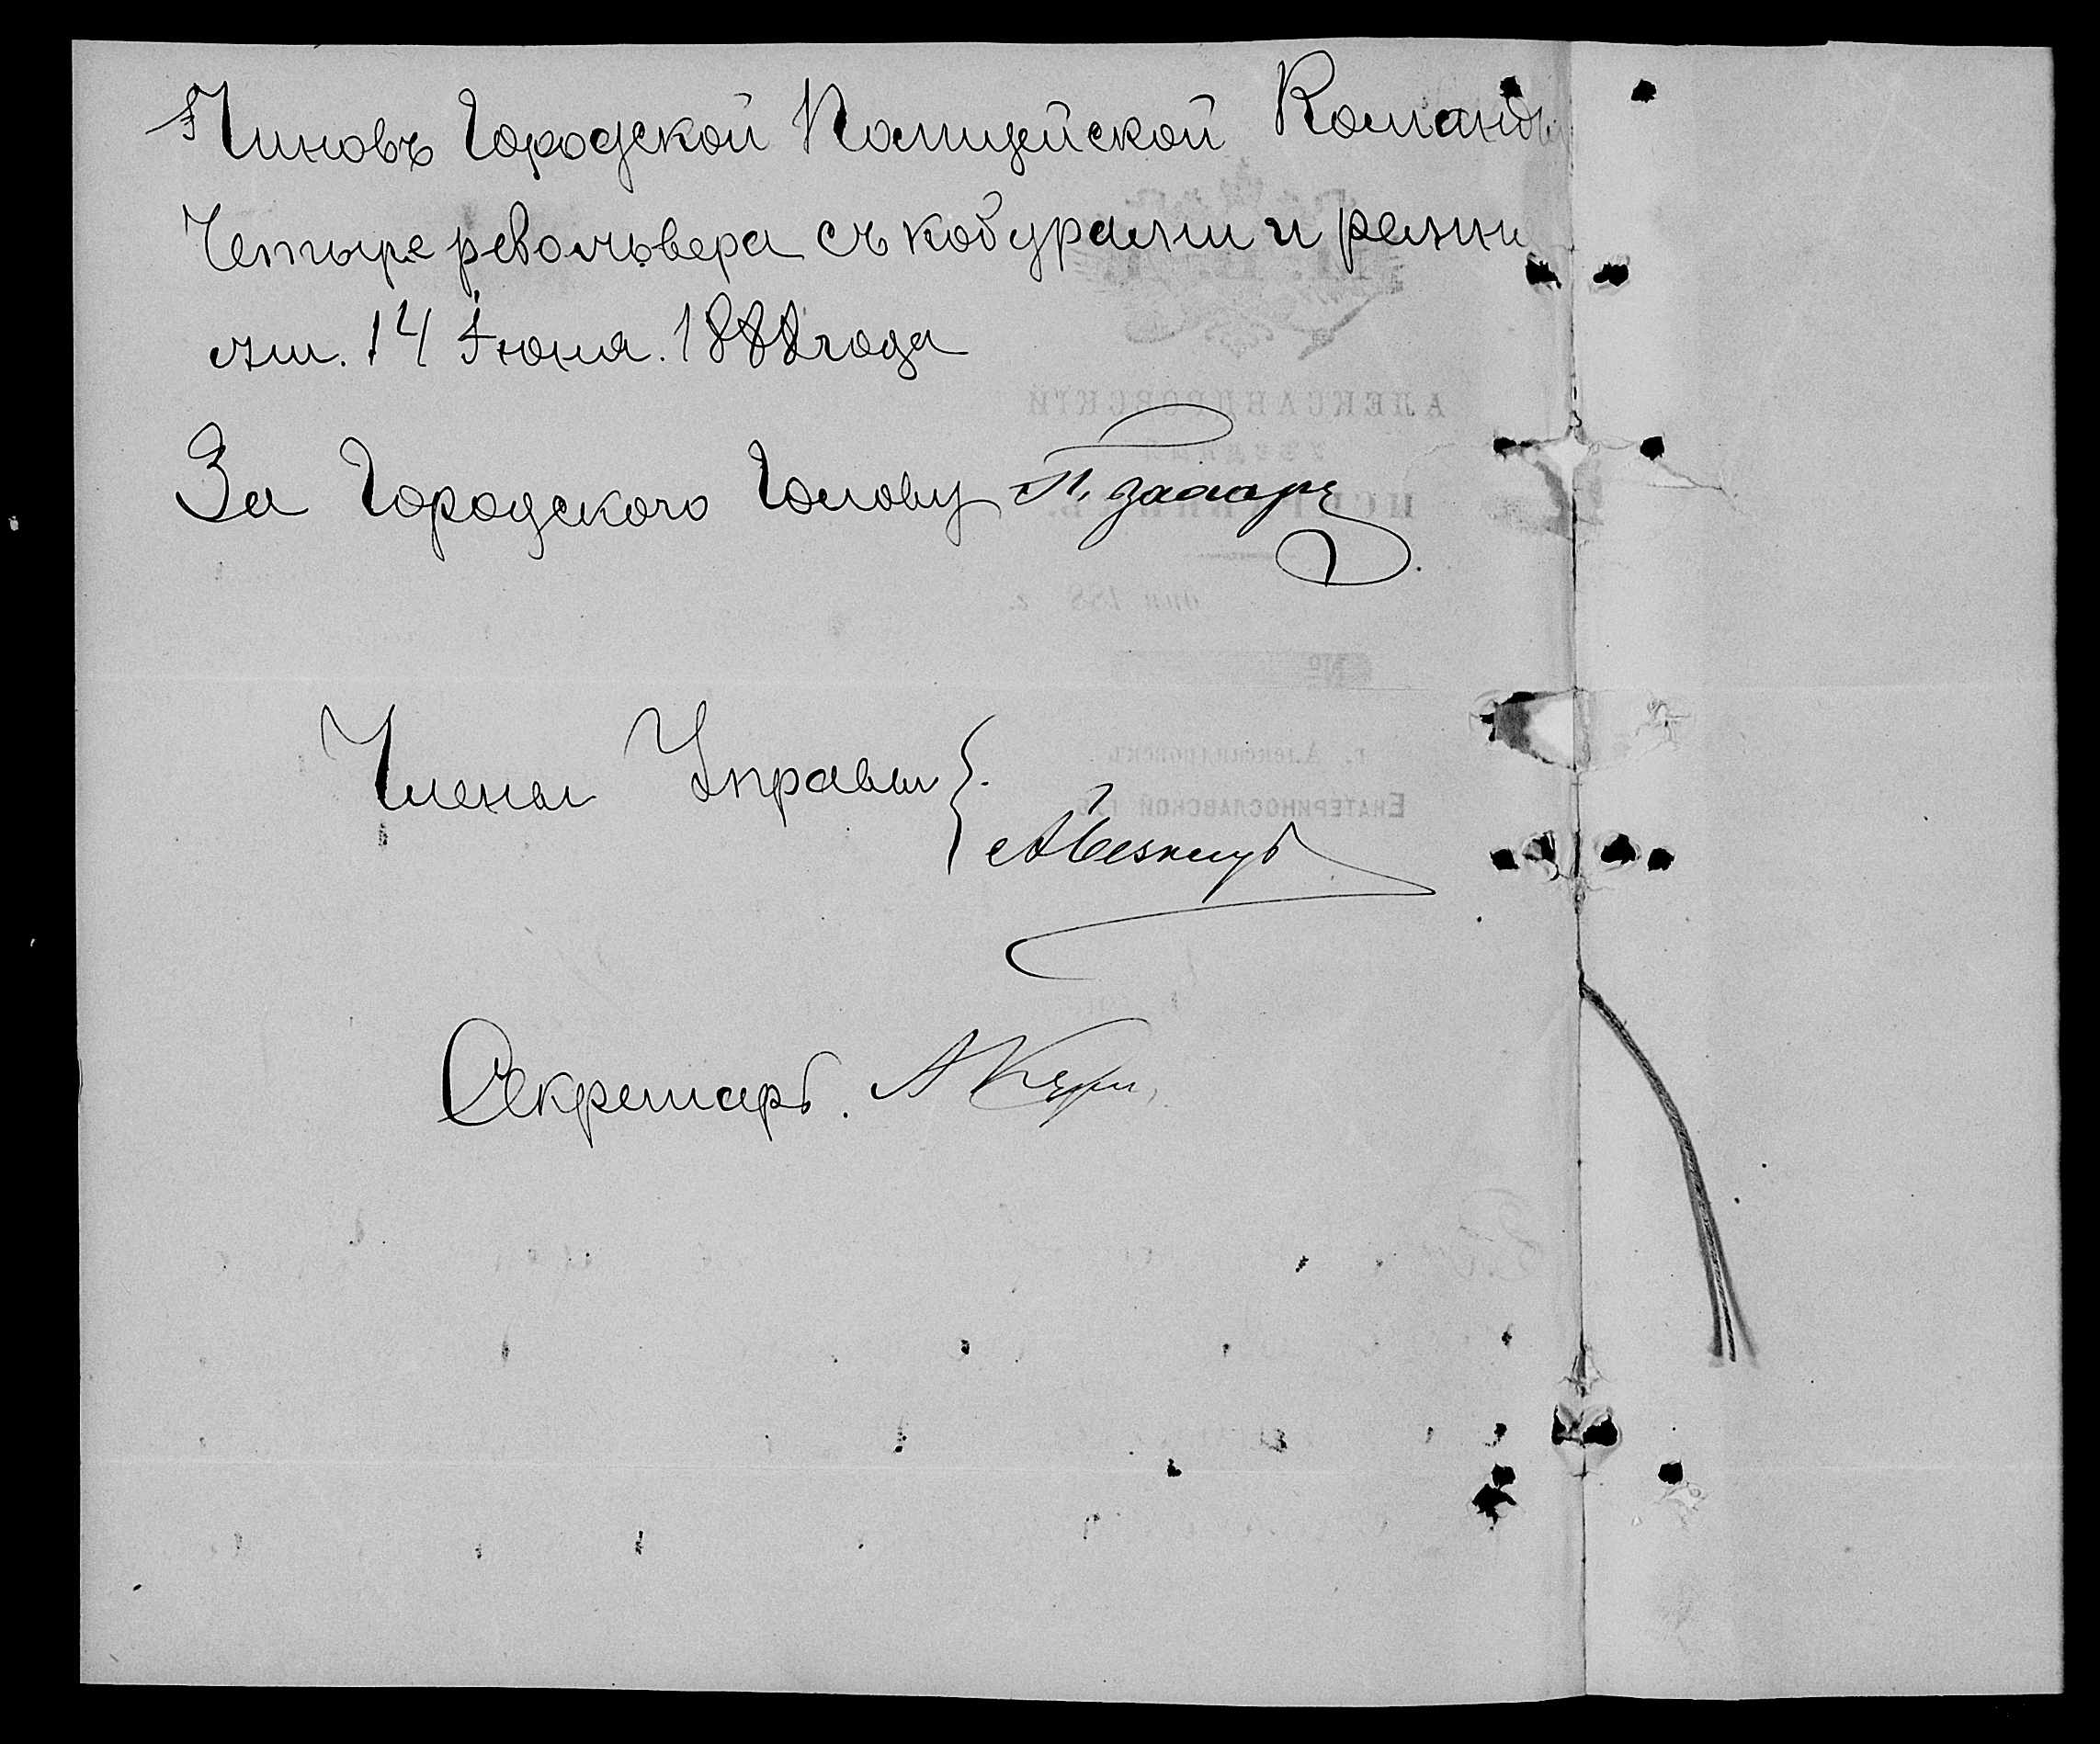 Чиновъ Городской Полицейской Команды
Четыре револьвера съ кобурами и ремня
ми. 14 Іюня. 1888 года
За Городского Голову П.
Члены Управы
Секретарь. А
АЛЕКСАНДРОВСКІЙ
УѢЗДНЫЙ
ИСПРАВНИКЪ.
дня 188 г.
№
г. Александровскъ
ЕКАТЕРИНОСЛАВСКОЙ ГУБ.